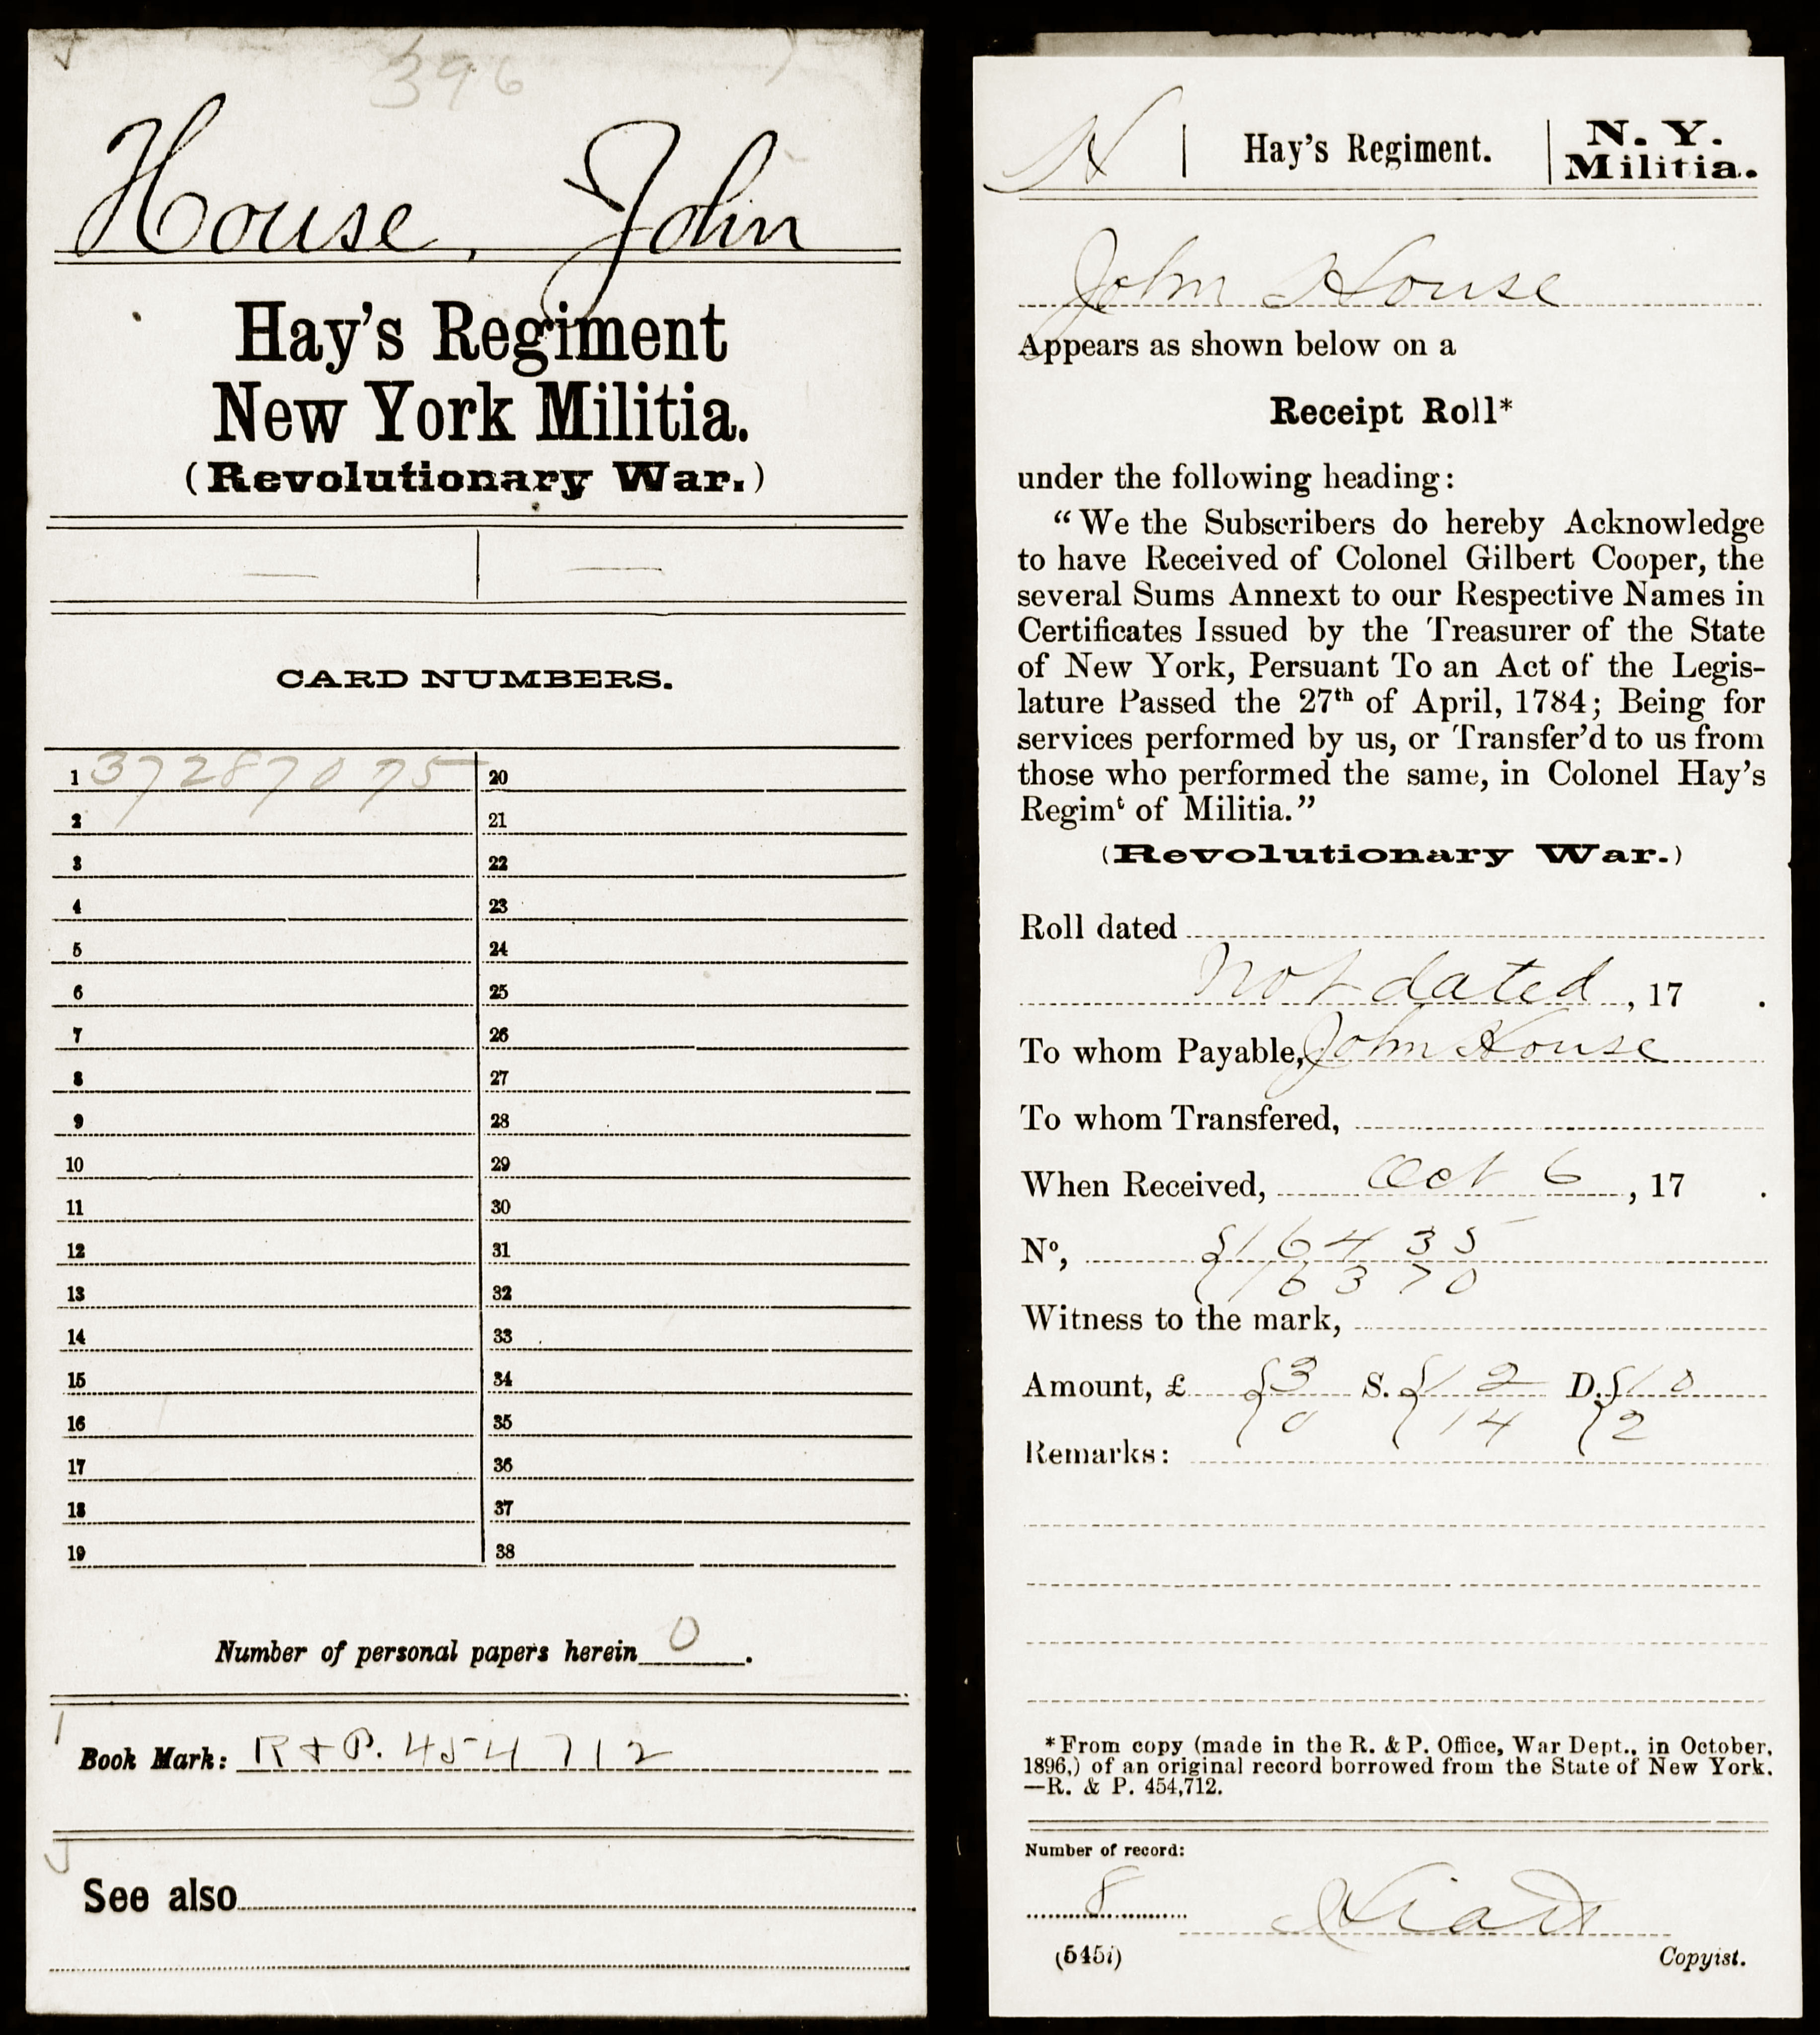 396
House, John
Hay's Regiment
New York Militia.
(Revolutionary War.)
CARD NUMBERS.
1 37287075 20
2 21
3 22
4 23
5 24
6 25
7 26
8 27
9 28
10 29
11 30
12 31
13 32
14 33
15 34
16 35
17 36
18 37
19 38
Number of personal papers herein 0.
Book Mark: R & P. 454712
See also
H | Hay's Regiment. | N. Y. Militia.
John House
Appears as shown below on a
Receipt Roll*
under the following heading:
“We the Subscribers do hereby Acknowledge
to have Received of Colonel Gilbert Cooper, the
several Sums Annext to our Respective Names in
Certificates Issued by the Treasurer of the State
of New York, Persuant To an Act of the Legis-
lature Passed the 27th of April, 1784; Being for
services performed by us, or Transfer'd to us from
those who performed the same, in Colonel Hay's
Regimt of Militia.”
(Revolutionary War.)
Roll dated
Not dated, 17 .
To whom Payable, John House
To whom Transfered,
When Received, Oct 6, 17 .
No, { 16435
{ 16370
Witness to the mark,
Amount, £ { 3 S. { 12 D. { 10
{ 0 { 14 { 2
Remarks:
*From copy (made in the R. & P. Office, War Dept., in October,
1896,) of an original record borrowed from the State of New York.
—R. & P. 454,712.
Number of record:
8
(545i) Copyist.